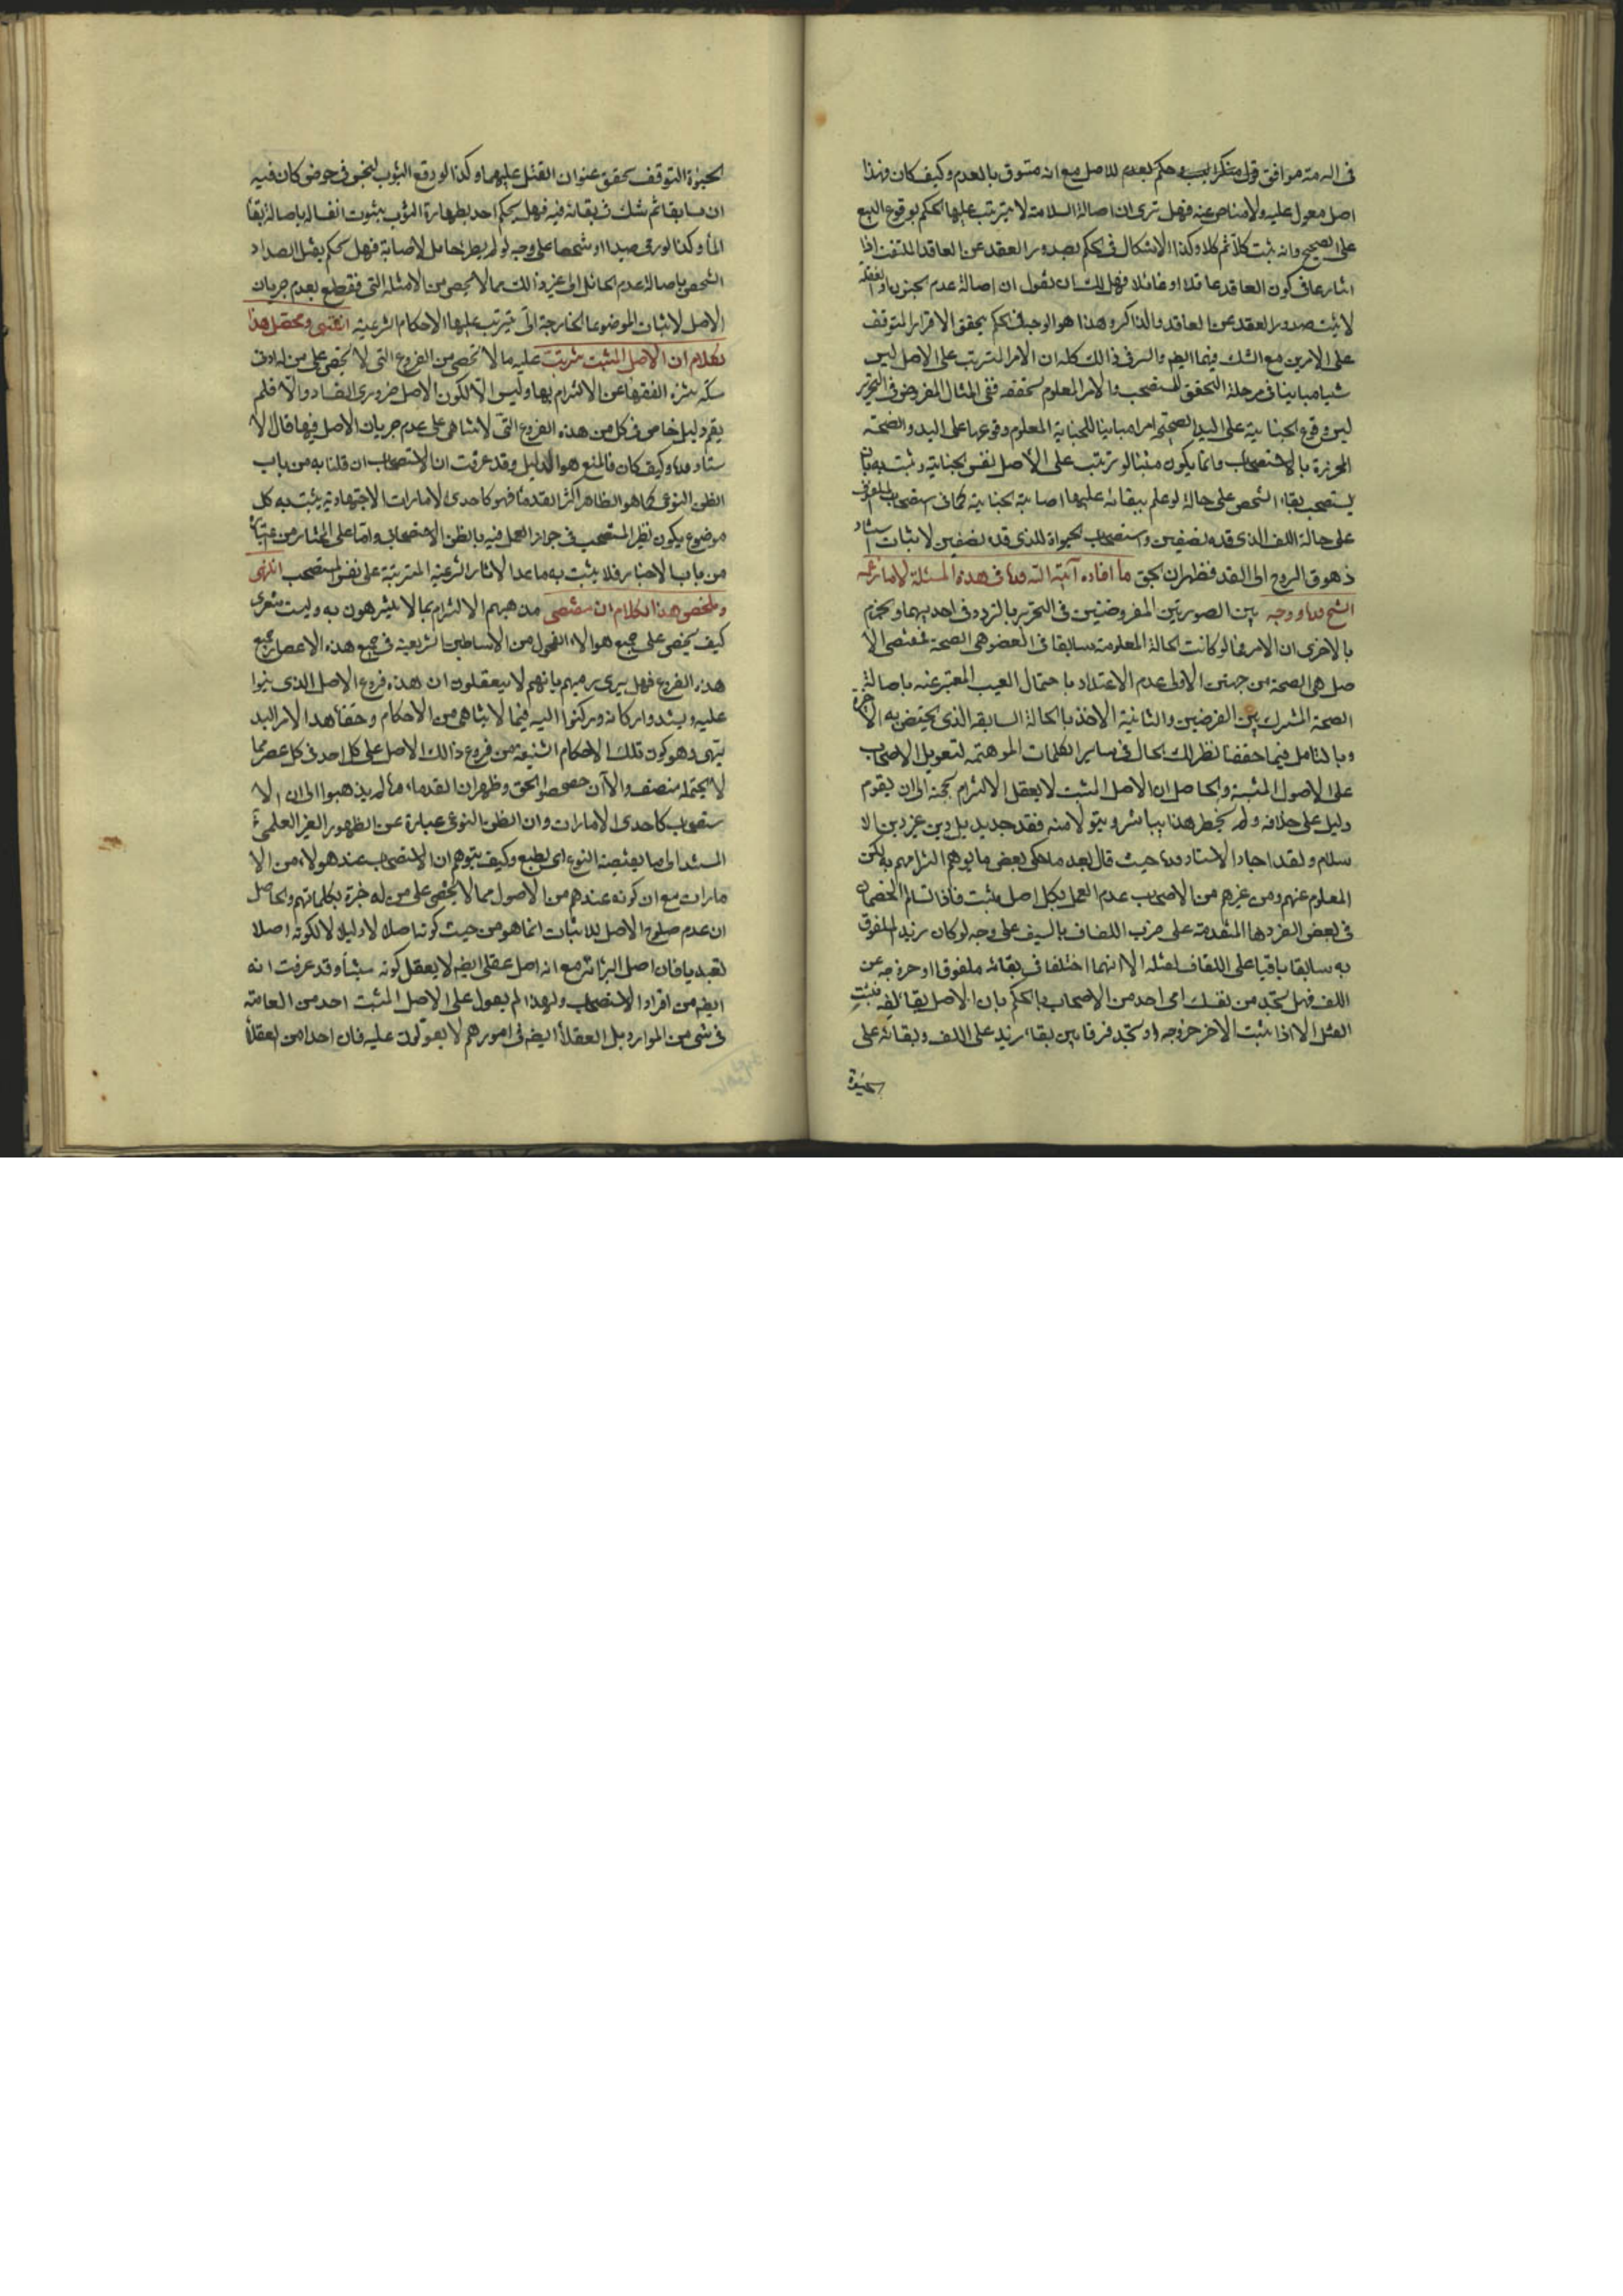 في الذمة موافق قول منكر السبب وحكم بعدم للاصل مع انه مسبوق بالعدم وكيف كان فهذا
اصل معول عليه ولا مناص عنه فهل ترى ان اصالة السلامة لا يترتب عليها الحكم بوقوع البيع
على الصحيح وانه يثبت كلا ثم كلا وكذا الاشكال في الحكم بصدور العقد عن العاقد الملتفت اذا
في كون العاقد عاقلا او غافلا فهل لك ان تقول ان اصالة عدم الجنون او الغفلة
لا يثبت صدور العقد عن العاقد والذاكر وهذا هو الوجه في الحكم بتحقق الاقرار المتوقف
على الامرين مع الشك فيهما ايضا والسر في ذالك كله ان الامر المترتب على الاصل ليس
شيئا مباينا في مرحلة التحقق للمستصحب والامر المعلوم تحققه ففي المثال المفروض في التحرير
ليس وقوع الجناية على اليد الصحيحة امرا مباينا للجناية المعلوم وقوعها على اليد والصحة
المحرزة بالاستصحاب وانما يكون مثبتا لو ترتب على الاصل نفس الجناية وثبت به بان
يستصحب بقاء الشخص على حالة لو علم ببقائه عليها اصابته الجناية كما في استصحاب الملفوف
على حالة اللف الذي قد بنصفين واستصحاب الحيواة للذي قد بنصفين لاثبات استناد
ذهوق الروح الى القد فظهر ان الحق ما افاده آية الله في هذه المسئلة لا ما زعمه
الشيخ ووجه بين الصورتين المفروضتين في التحرير بالتردد في احديهما والجزم
بالاخرى ان الامر فيما لو كانت الحالة المعلومة سابقا في العضو هي الصحة فمقتضى الا
صل هي الصحة من جهتين الاولى عدم الاعتداد باحتمال العيب المعتبر عنه باصالة
الصحة المشترك بين الفرضين والثانية الاخذ بالحالة السابقة الذي يختص به الاخيرة
وبالتامل فيما حققنا يظهر لك الحال في ساير الكلمات الموهمة لتعويل الاصحاب
على الاصول المثبتة والحاصل ان الاصل المثبت لا يعقل الالتزام بحجية الى ان يقوم
دليل على خلافه ولم يخطر هذا ببال بشر ويتولا منه فقه جديد بل دين غير دين الا
سلام ولقد اجاد الاستاد حيث قال بعد ما حكى بعض ما يوهم التزامهم به لكن
المعلوم عنهم ومن غيرهم من الاصحاب عدم العمل بكل اصل مثبت فاذا تسالم الخصمان
في بعض الفروع المتقدمة على ضرب اللفاف بالسيف على وجه لو كان زيد الملفوف
به سابقا باقيا على اللفاف لقتله الا انهما اختلفا في بقائه ملفوفا او خروجه عن
اللف فهل تجد من نفسك رمي احد من الاصحاب بالحكم بان الاصل بقائه لفه فيثبت
القتل الا اذا يثبت الاخر خروجه او تجد فرقا بين بقاء زيد على اللف وبقائه على
الحيوة
الحيوة التوقف تحقق عنوان القتل عليهما وكذا لو وقع الثوب النجس في حوض كان فيه
الماء سابقا ثم شك في بقائه فيه فهل يحكم احد بطهارة الثوب بثبوت انغساله باصالة بقاء
الماء وكذا لو رمى صيدا او شخصا على وجه لو لم يطرء حائل لاصابه فهل يحكم بقتل الصيد او
الشخص باصالة عدم الحائل الى غير ذالك مما لا يحصى من الامثلة التي نقطع بعدم جريان
الاصل لاثبات الموضوعات الخارجية التي يترتب عليها الاحكام الشرعية انتهى ومحصل هذا
الكلام ان الاصل المثبت يترتب عليه ما لا تحصى من الفروع التي لا يخفى على من له ادنى
الفقهاء عن الالتزام بها وليس الا لكون الاصل ضروري الفساد والا فلم
يقم دليل خاص في كل من هذه الفروع التي لا تتناهى على عدم جريان الاصل فيها قال الا
ستاد وكيف كان فالمتبع هو الدليل وقد عرفت ان الاستصحاب ان قلنا به من باب
الظن النوعي كما هو الظاهر اكثر القدماء فهو كاحدى الامارات الاجتهادية يثبت به كل
موضوع يكون نظير المستصحب في جواز العمل فيه بالظن الاستصحابي واما على المختار من اعتباره
من باب الاخبار فلا يثبت به ما عدا الاثار الشرعية المترتبة على نفس المستصحب انتهى
وملخص هذا الكلام ان مقتضى مذهبهم الالتزام بما لا يلتزمون به وليت شعري
كيف يخفى على جميع هؤلاء الفحول من الاساطين الشريعة في جميع هذه الاعصار جميع
هذه الفروع فهل يرى يرميهم بانهم لا يعقلون ان هذه فروع الاصل الذي بنوا
عليه ويشدوا اركانه ويركنوا اليه فيما لا يتناهى من الاحكام وخفاء هذا الامر البد
يهي وهو كون تلك الاحكام الشنيعة من فروع ذالك الاصل على كل احد في كل عصر مما
لا يحتمله منصف والآن حصحص الحق وظهر ان القدماء لم يذهبوا الى ان الا
ستصحاب كاحدى الامارات وان الظن النوعي عبارة عن الظهور الغير العلمي
المستند الى ما يقتضيه النوع اي الطبع وكيف يتوهم ان الاستصحاب عند هؤلاء من الا
مارات مع ان كونه عندهم من الاصول مما لا يخفى على من له خبرة بكلماتهم والحاصل
ان عدم صلوح الاصل للاثبات انما هو من حيث كونه اصلا لا دليلا لا لكونه اصلا
تعبديا فان اصل البرائة مع انه اصل عقلي ايضا لا يعقل كونه مثبتا وقد عرفت انه
ايضا من افراد الاستصحاب ولهذا لم يعول على الاصل المثبت احد من العامة
في شيء من الموارد بل العقلاء ايضا في امورهم لا يعولون عليه فان احدا من العقلاء